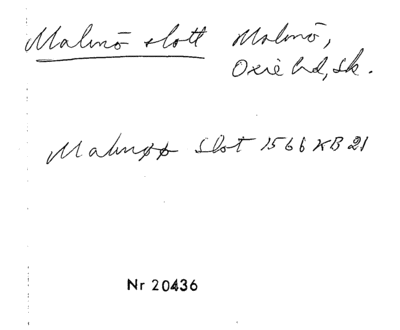 Malmö slott Malmö,
Oxie hd, Sk.
Malmpp Slot 1566 KB 21
Nr 20436